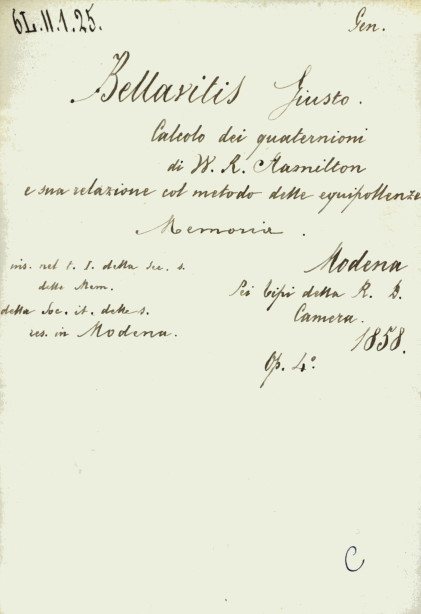 6L.II.1.25.
Gen.
Bellavitis Giusto.
Calcolo dei quaternioni
di W. R. Hamilton
e sua relazione col metodo delle equipollenze
Memoria.
ins. nel t. I. della Sec. s.
delle Mem.
della Soc. it. delle s.
res. in Modena.
Modena
Pei tipi della R. D.
Camera.
1858.
Op. 4º.
C